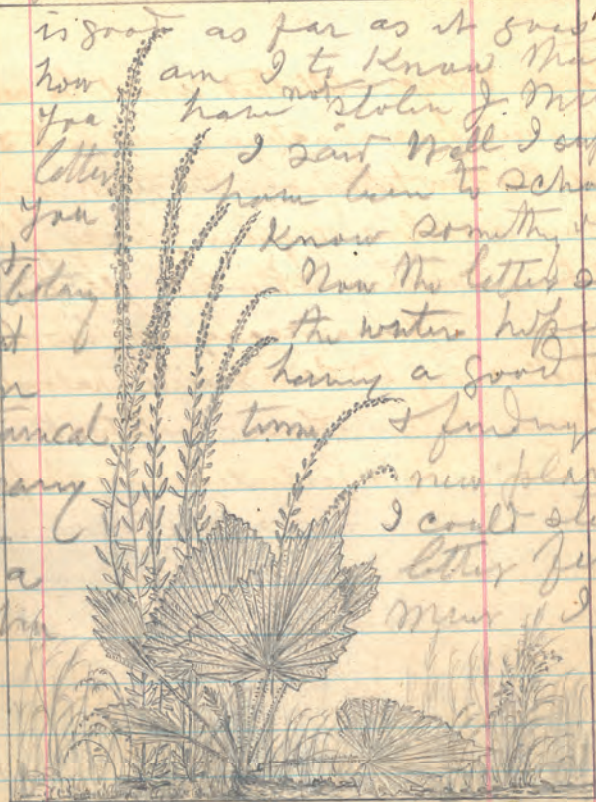 is good as far as it goes
how am I to Know tha
you have not stolen J. Mu
letter I said Well I sup
you have been to scho
Know someth
botany Now the letter s
the writer hope
having a good
anical time & finding
many new plan
I could sto
a letter f
Muir I